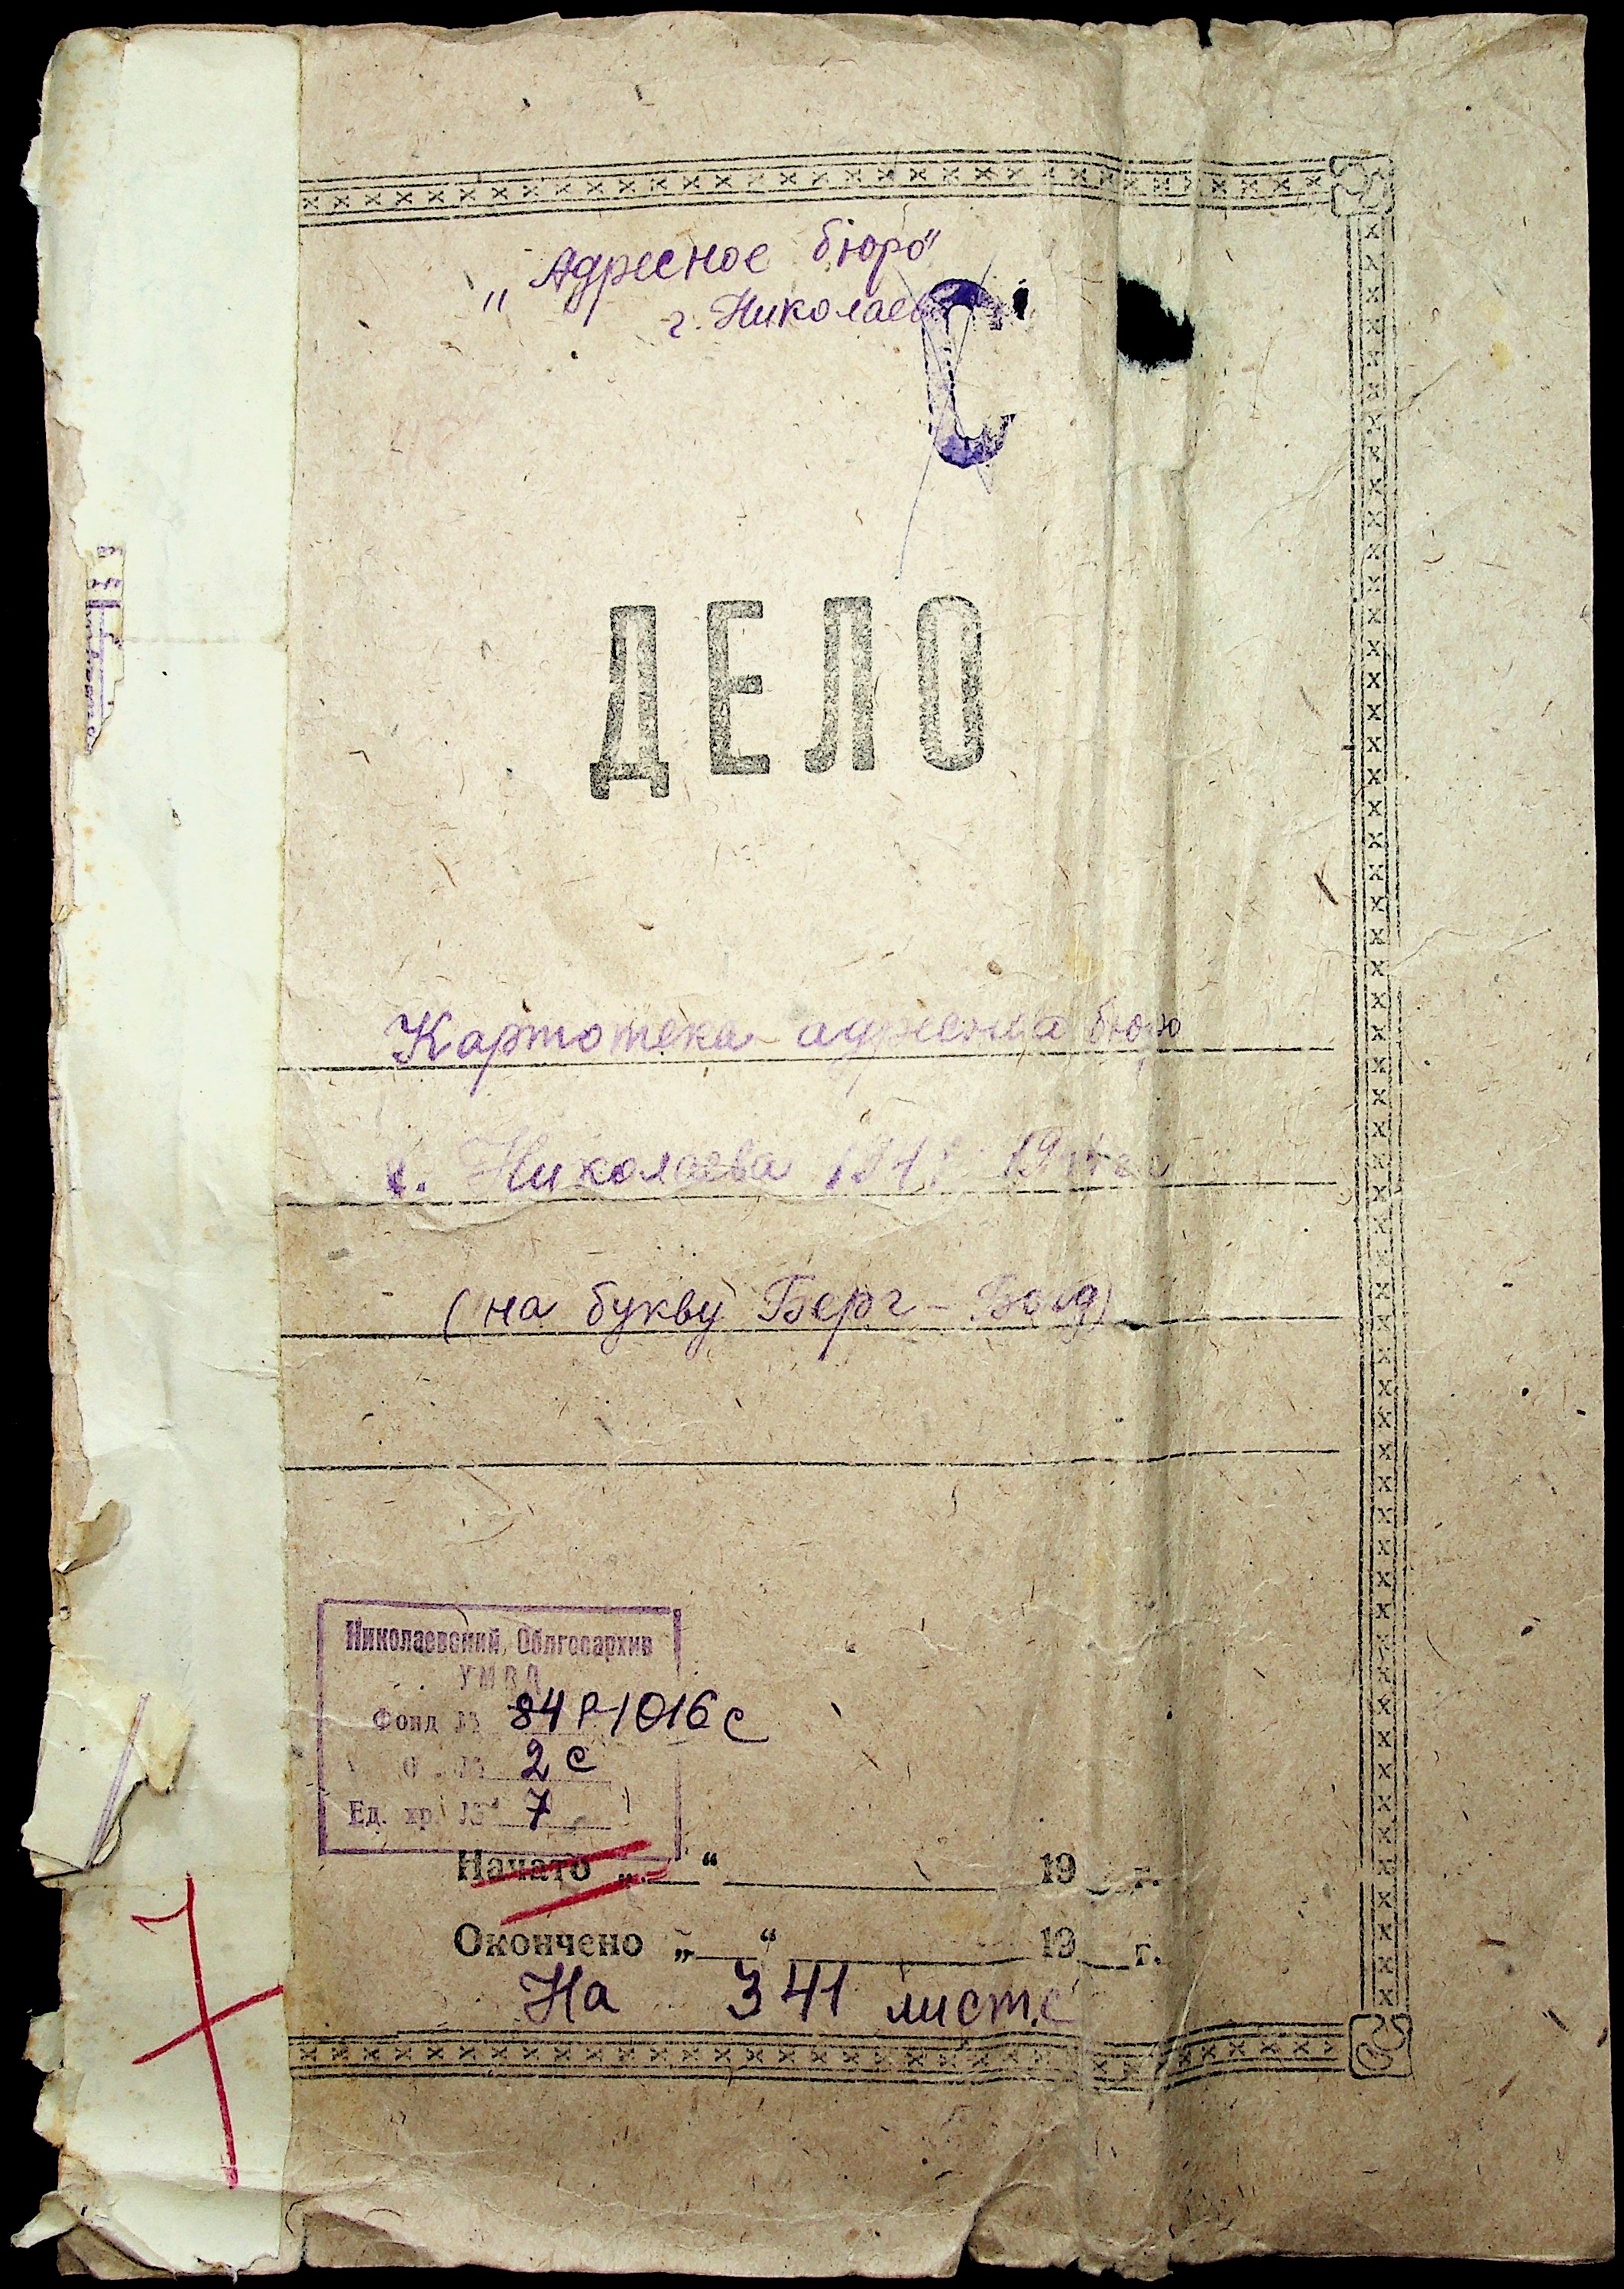 „Адресное бюро"
г. Николаев
С
ДЕЛО
Картотека адресна бюро
г. Николаева
(на букву Берг –
Николаевский Облгосархив
УМВД
Фонд № 84 Р-1016 с
О . № 2 с
Ед. хр. № 7
Начато „ “ 19 г.
Окончено „ “ 19 г.
На 341 листе
7